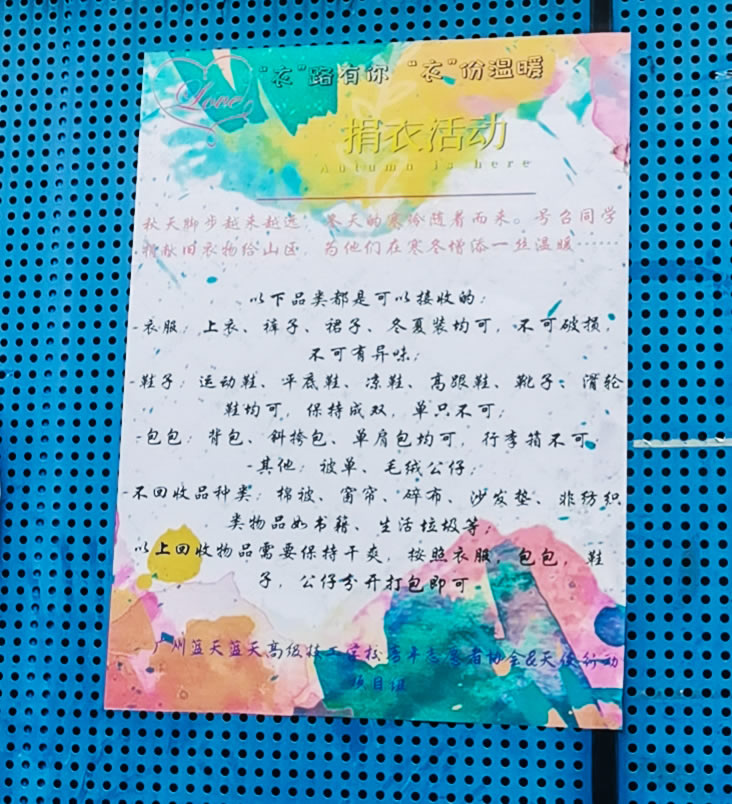 Love
“衣”路有你 “衣”份温暖
捐衣活动
Autumn is here
秋天脚步越来越远，冬天的寒冷随着而来。号召同学
捐献旧衣物给山区，为他们在寒冬增添一丝温暖……
以下品类都是可以接收的：
-衣服：上衣、裤子、裙子、冬夏装均可，不可破损，
不可有异味；
-鞋子：运动鞋、平底鞋、凉鞋、高跟鞋、靴子、滑轮
鞋均可，保持成双，单只不可；
-包包：背包、斜挎包、单肩包均可，行李箱不可
-其他：被单、毛绒公仔；
-不回收品种类：棉被、窗帘、碎布、沙发垫、非纺织
类物品如书籍、生活垃圾等；
以上回收物品需要保持干爽，按照衣服，包包，鞋
子，公仔分开打包即可
广州蓝天蓝天高级技工学校青年志愿者协会&天使行动
项目组